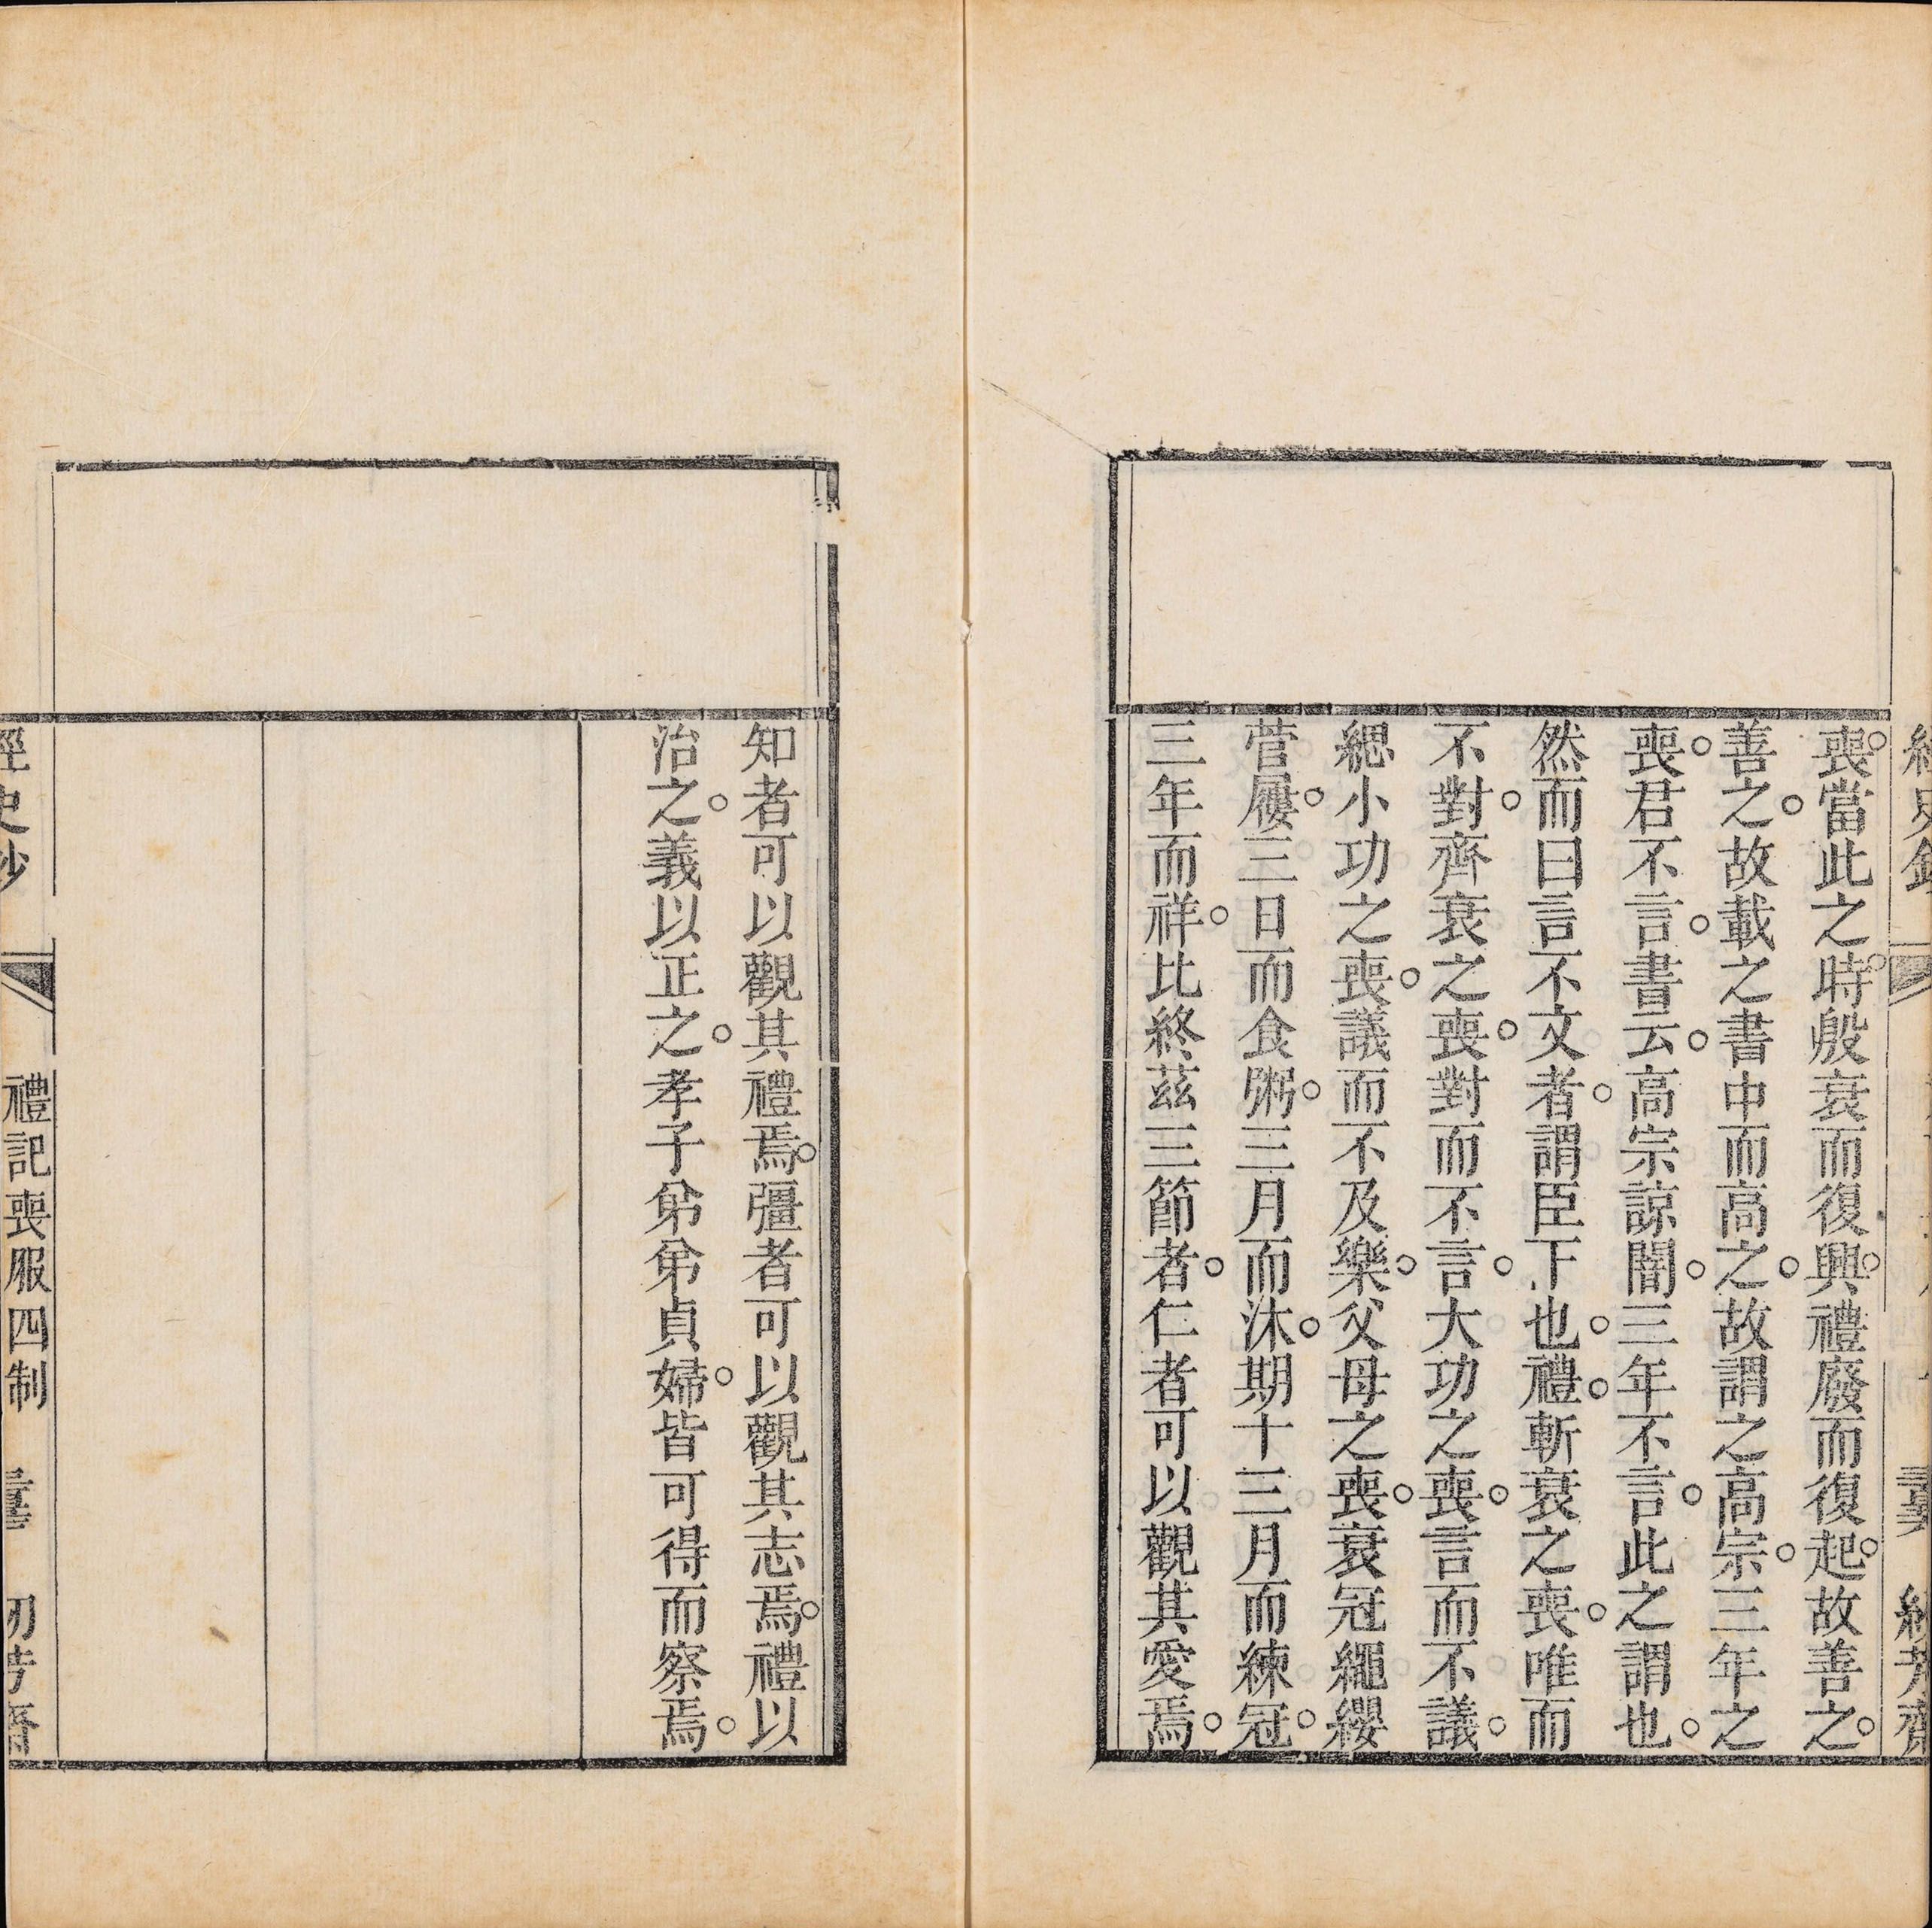 喪當此之時殷衰而復興禮廢而復起故善之
善之故載之書中而高之故謂之高宗三年之
喪君不言書云高宗諒闇三年不言此之謂也
然而曰言不文者謂臣下也禮斬衰之喪唯而
不對齊衰之喪對而不言大功之喪言而不議
緦小功之喪議而不及樂父母之喪衰冠繩纓
菅屨三日而食粥三月而沐期十三月而練冠
三年而祥比終茲三節者仁者可以觀其愛焉
知者可以觀其禮焉彊者可以觀其志焉禮以
治之義以正之孝子弟弟貞婦皆可得而察焉
經史鈔 禮記喪服四制